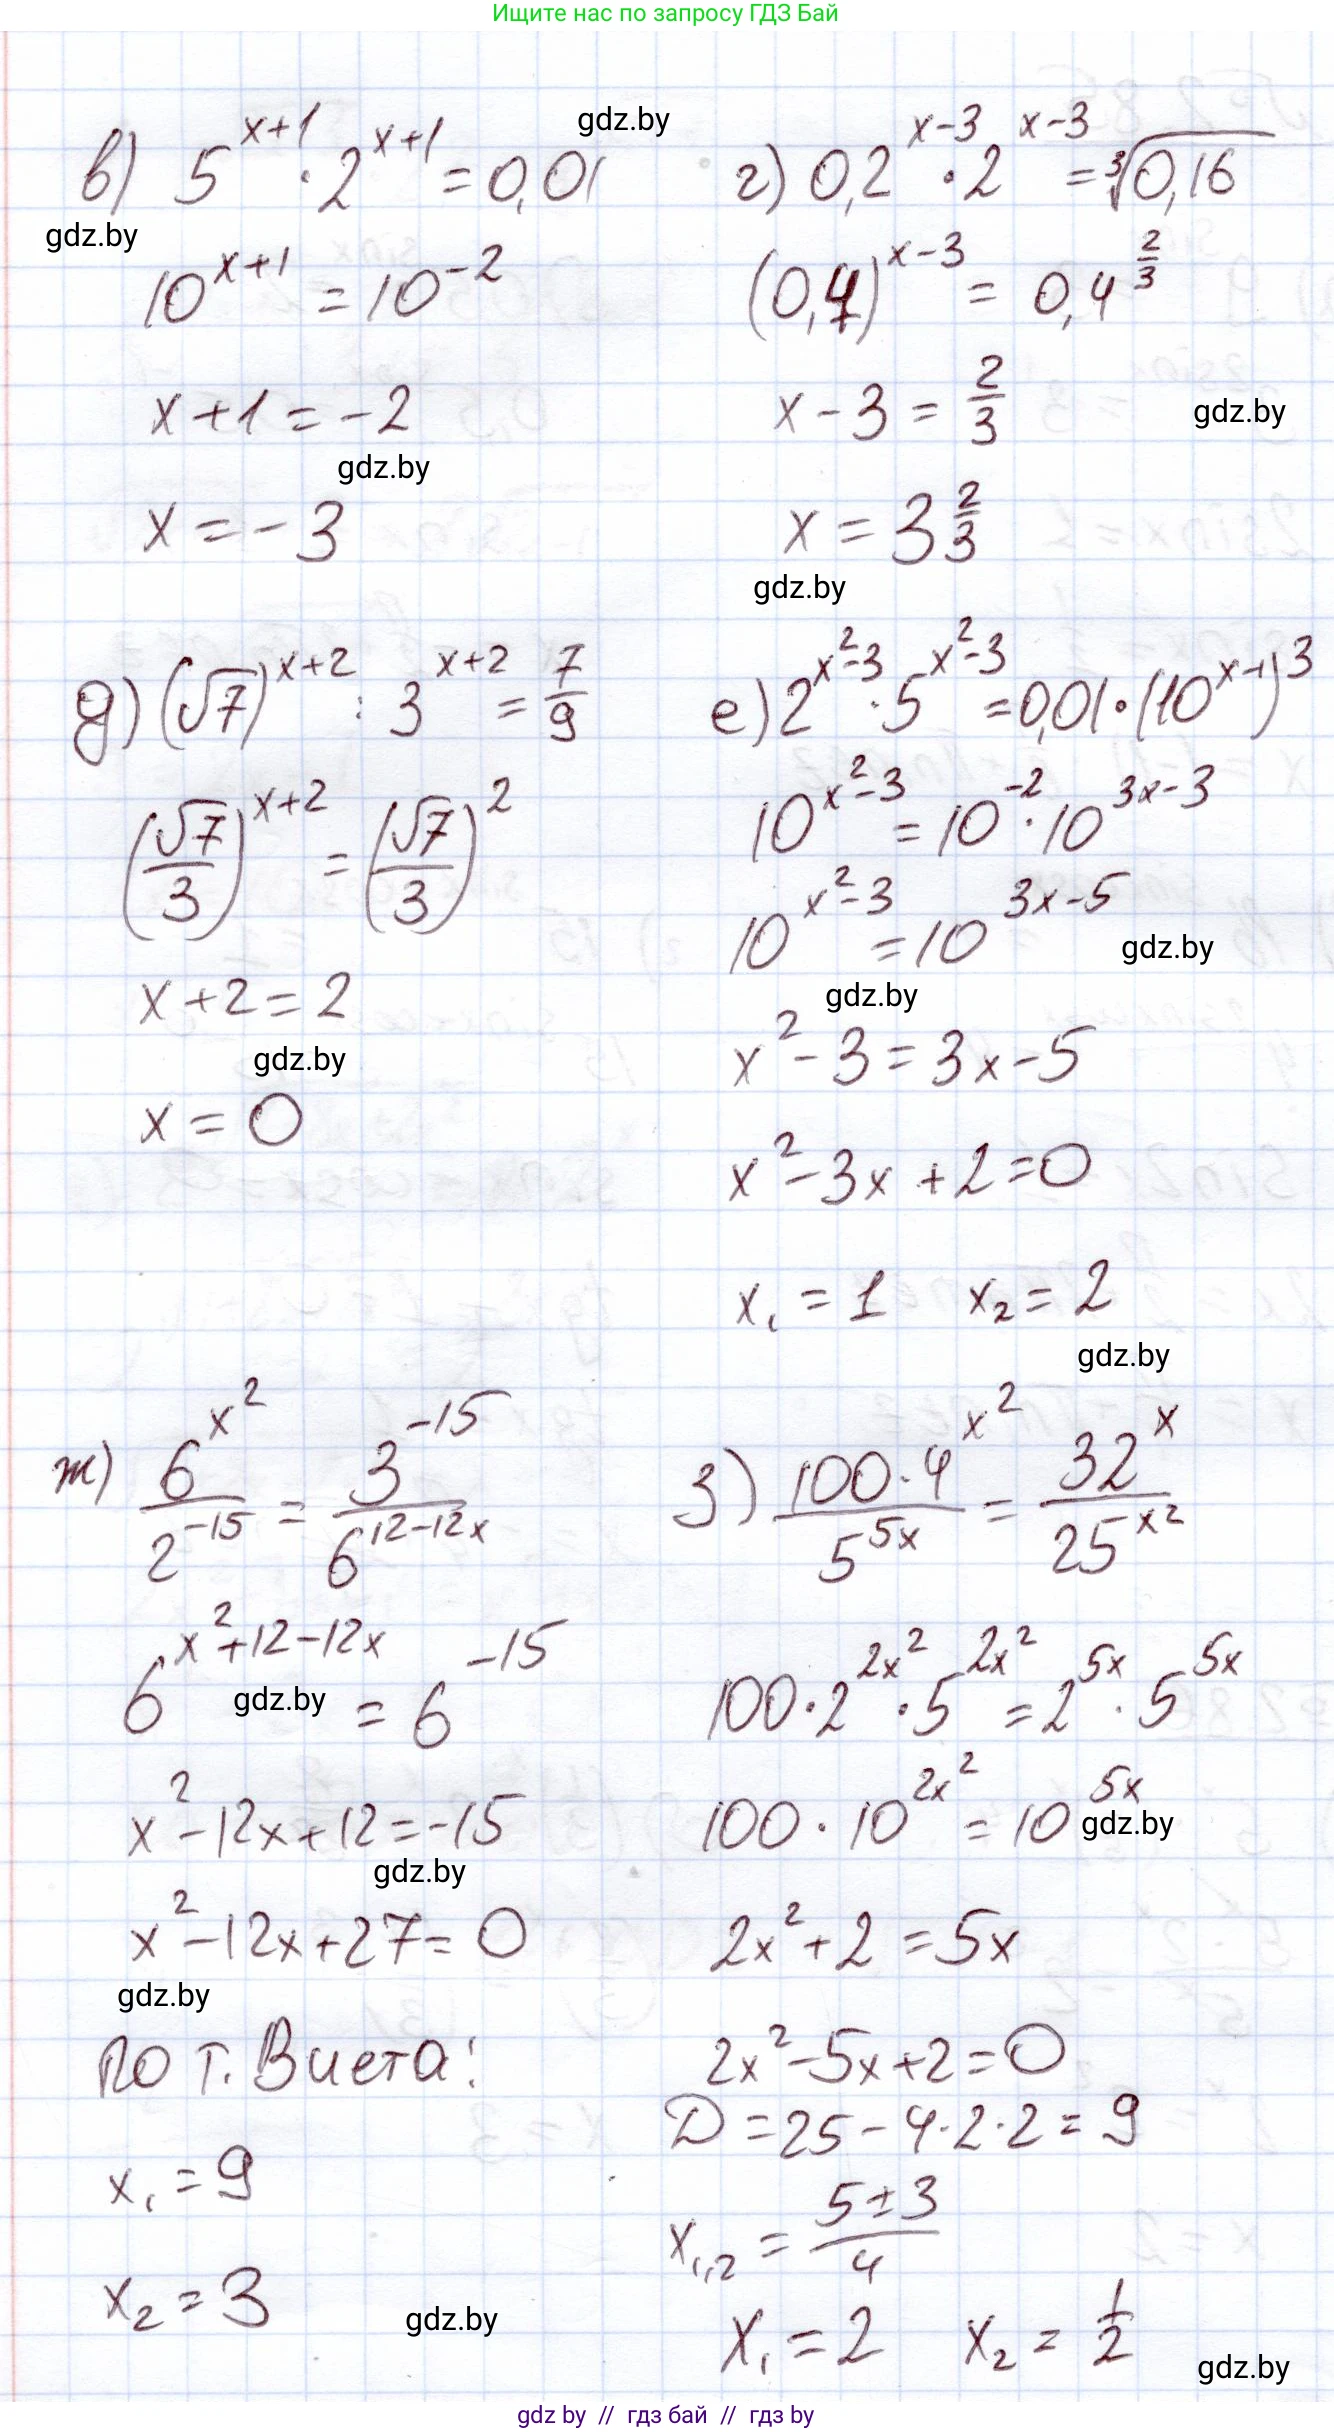 Ищите нас по запросу ГДЗ Бай
gdz.by
в) 5^(x+1) · 2^(x+1) = 0,01
gdz.by
10^(x+1) = 10^(-2)
x+1 = -2
gdz.by
x = -3
г) 0,2^(x-3) · 2^(x-3) = ∛0,16
(0,4)^(x-3) = 0,4^(2/3)
x - 3 = 2/3
gdz.by
x = 3 2/3
gdz.by
д) (√7)^(x+2) : 3^(x+2) = 7/9
(√7/3)^(x+2) = (√7/3)^2
x+2 = 2
gdz.by
x = 0
е) 2^(x²-3) · 5^(x²-3) = 0,01 · (10^(x-1))^3
10^(x²-3) = 10^(-2) · 10^(3x-3)
10^(x²-3) = 10^(3x-5)
gdz.by
gdz.by
x² - 3 = 3x - 5
x² - 3x + 2 = 0
x₁ = 1 x₂ = 2
gdz.by
ж) 6^(x²)/2^(-15) = 3^(-15)/6^(12-12x)
6^(x²+12-12x) = 6^(-15)
gdz.by
x² - 12x + 12 = -15
gdz.by
x² - 12x + 27 = 0
gdz.by
по т. Виета:
x₁ = 9
x₂ = 3
gdz.by
з) 100·4^(x²)/5^(5x) = 32^x/25^(x²)
100 · 2^(2x²) · 5^(2x²) = 2^(5x) · 5^(5x)
100 · 10^(2x²) = 10^(5x)
gdz.by
2x² + 2 = 5x
2x² - 5x + 2 = 0
D = 25 - 4·2·2 = 9
x₁,₂ = (5±3)/4
x₁ = 2 x₂ = 1/2
gdz.by
gdz by // гдз бай // гдз by